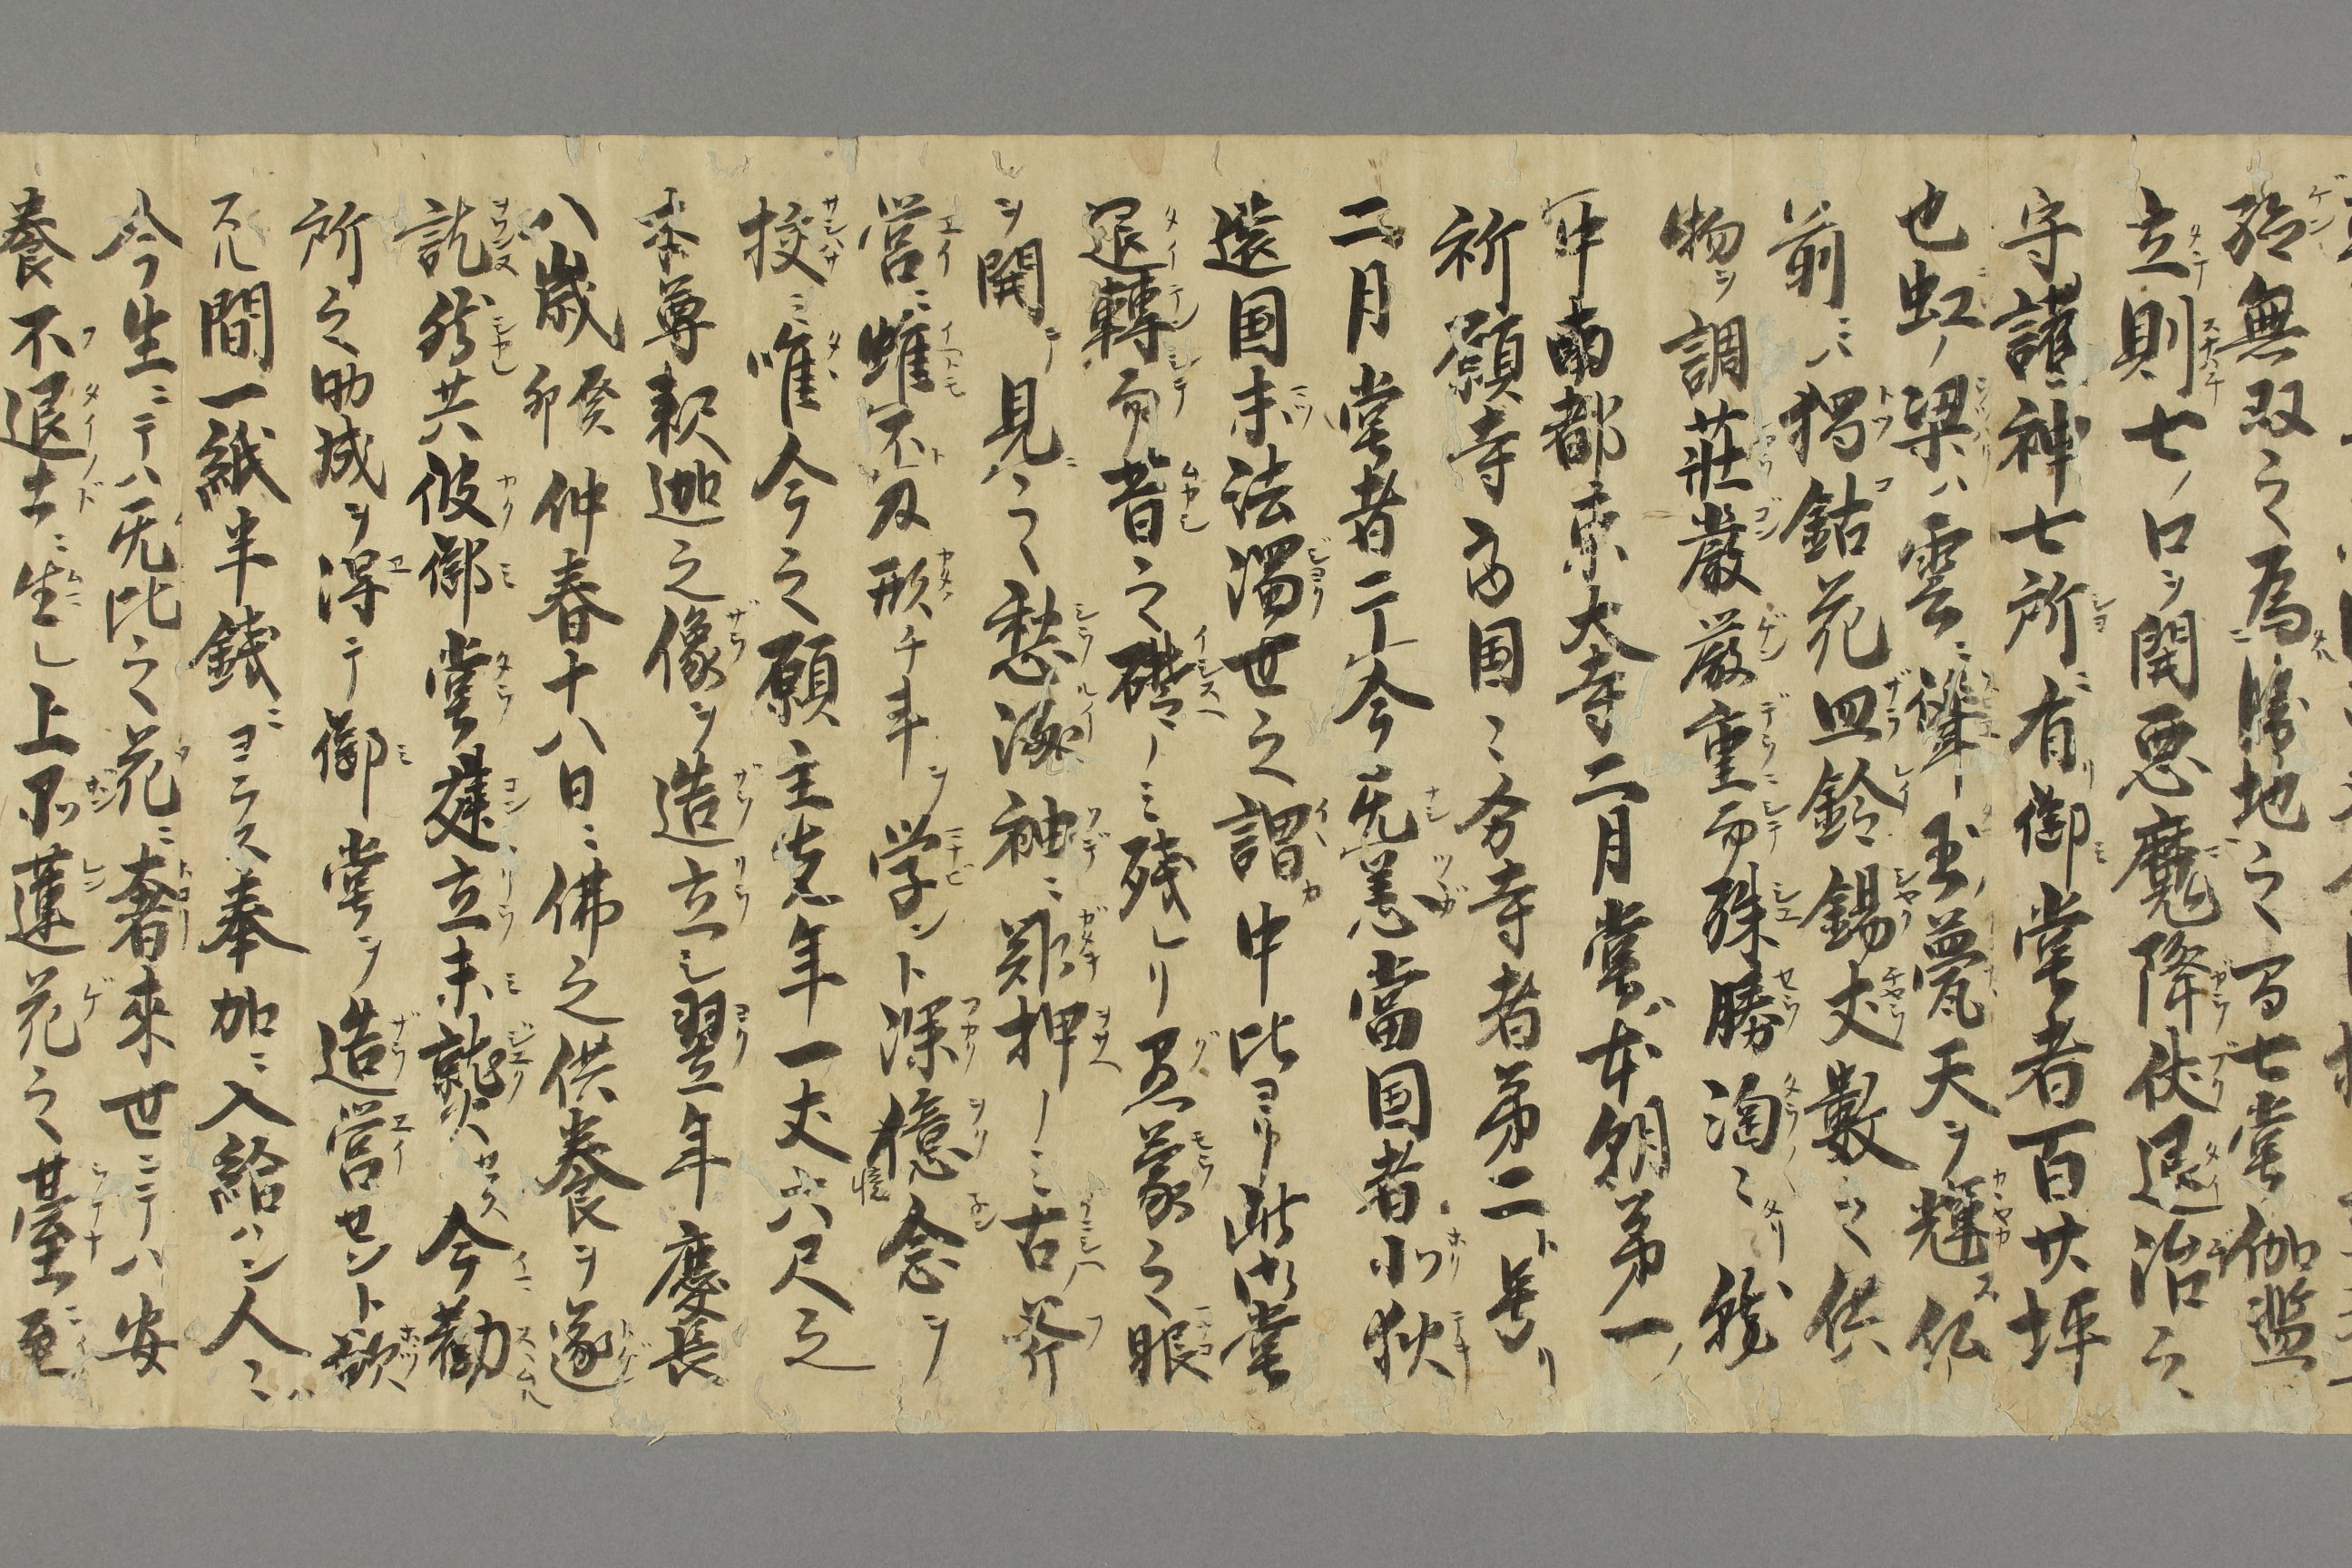 殆無双之為勝地之間七堂伽藍
立則七ノ口ヲ開悪魔降伏退治之
守諸神七所有御堂者百廿坪
也虹ノ梁ハ雲ニ聳玉ノ甍天ヲ輝ス仏
前ニハ独鈷花皿鈴錫丈數之供
物ヲ調荘嚴厳重而殊勝淘々タリ就
中南都東大寺二月堂ハ本朝第一ノ
祈願寺国々分寺者第二ト号リ
二月堂者于今无恙當国者小狄
遠国末法濁世之謂カ中比ヨリ此御堂
退轉而昔之礎ノミ残レリ愚蒙之眼
ヲ開テ見ハ之愁涙袖ニ難押ノミ古斧
営ニ雖不及形チ計ヲ学ント深憶念ヲ
挍ミ唯今之願主先年一丈六尺之
本尊釈迦之像ヲ造立シ翌年慶長
八歳癸卯仲春十八日ニ佛之供養ヲ遂
訖然共彼御堂建立未就今勸
所之助成ヲ得テ御堂ヲ造営セント欲
スル間一紙半錢ニヨラス奉加ニ入給ハン人々ハ
今生ニテハ无比之花ニ奢來世ニテハ安
養不退土ニ生レ上品蓮花之臺